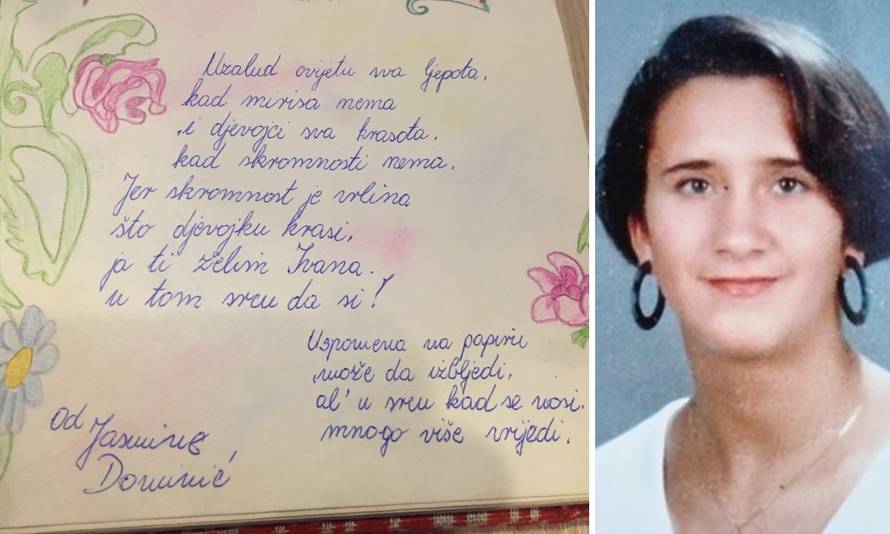 Uzalud cvijetu sva ljepota,
kad mirisa nema
i djevojci sva krasota.
kad skromnosti nema.
Jer skromnost je vrlina
što djevojku krasi,
ja ti želim Ivana.
u tom srcu da si!
Uspomena na papiru
može da izbljedi,
al' u srcu kad se nosi.
mnogo više vrijedi.
Od Jasmine
Dominić